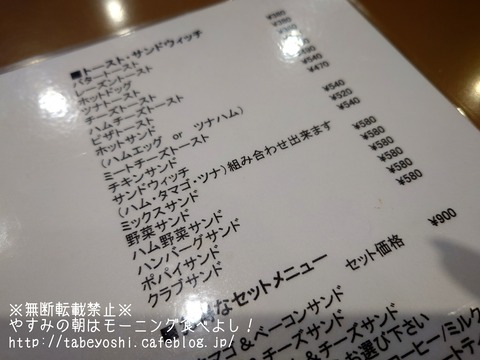 ■トースト・サンドウィッチ
バタートースト
レーズントースト
ホットドッグ
ツナトースト
チーズトースト
ハムチーズトースト
ピザトースト
ホットサンド
(ハムエッグ or ツナハム)
ミートチーズトースト
チキンサンド
サンドウィッチ
(ハム・タマゴ・ツナ)組み合わせ出来ます
ミックスサンド
野菜サンド
ハム野菜サンド
ハンバーグサンド
ポパイサンド
クラブサンド
¥360
¥380
¥490
¥540
¥470
¥540
¥520
¥540
¥580
¥580
¥580
¥580
¥580
なセットメニュー セット価格 ¥900
タマゴ&ベーコンサンド
&チーズサンド
&チーズサンド
お選び下さい
ーヒー/ミルク
※無断転載禁止※
やすみの朝はモーニング食べよし！
http://tabeyoshi.cafeblog.jp/